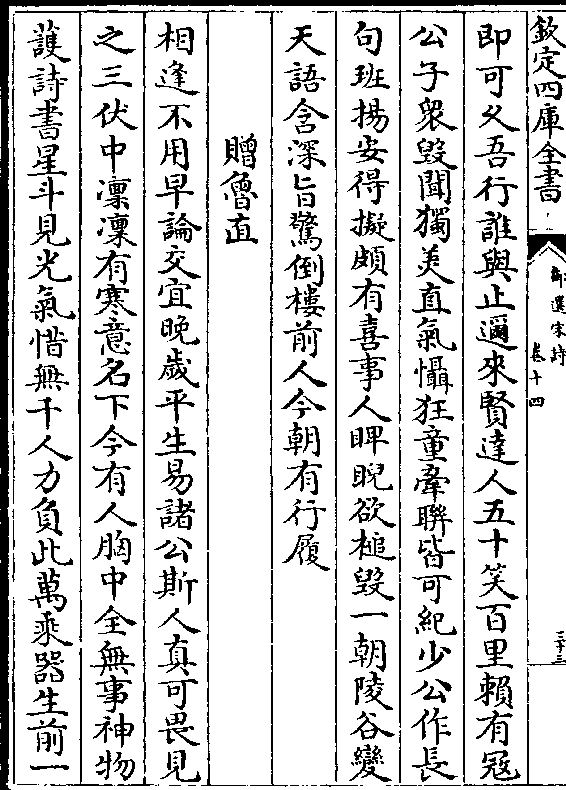 欽定四庫全書
御選宋詩
卷十四
三十三
即可乆吾行誰與止邇來賢達人五十笑百里賴有冦
公子衆毀聞獨羙直氣懾狂童牽聨皆可紀少公作長
句班揚安得擬頗有喜事人睥睨欲槌毀一朝陵谷變
天語含深旨驚倒樓前人今朝有行履
贈魯直
相逢不用早論交宜晚歲平生易諸公斯人真可畏見
之三伏中凛凛有寒意名下今有人胸中全無事神物
護詩書星斗見光氣惜無千人力負此萬乗器生前一